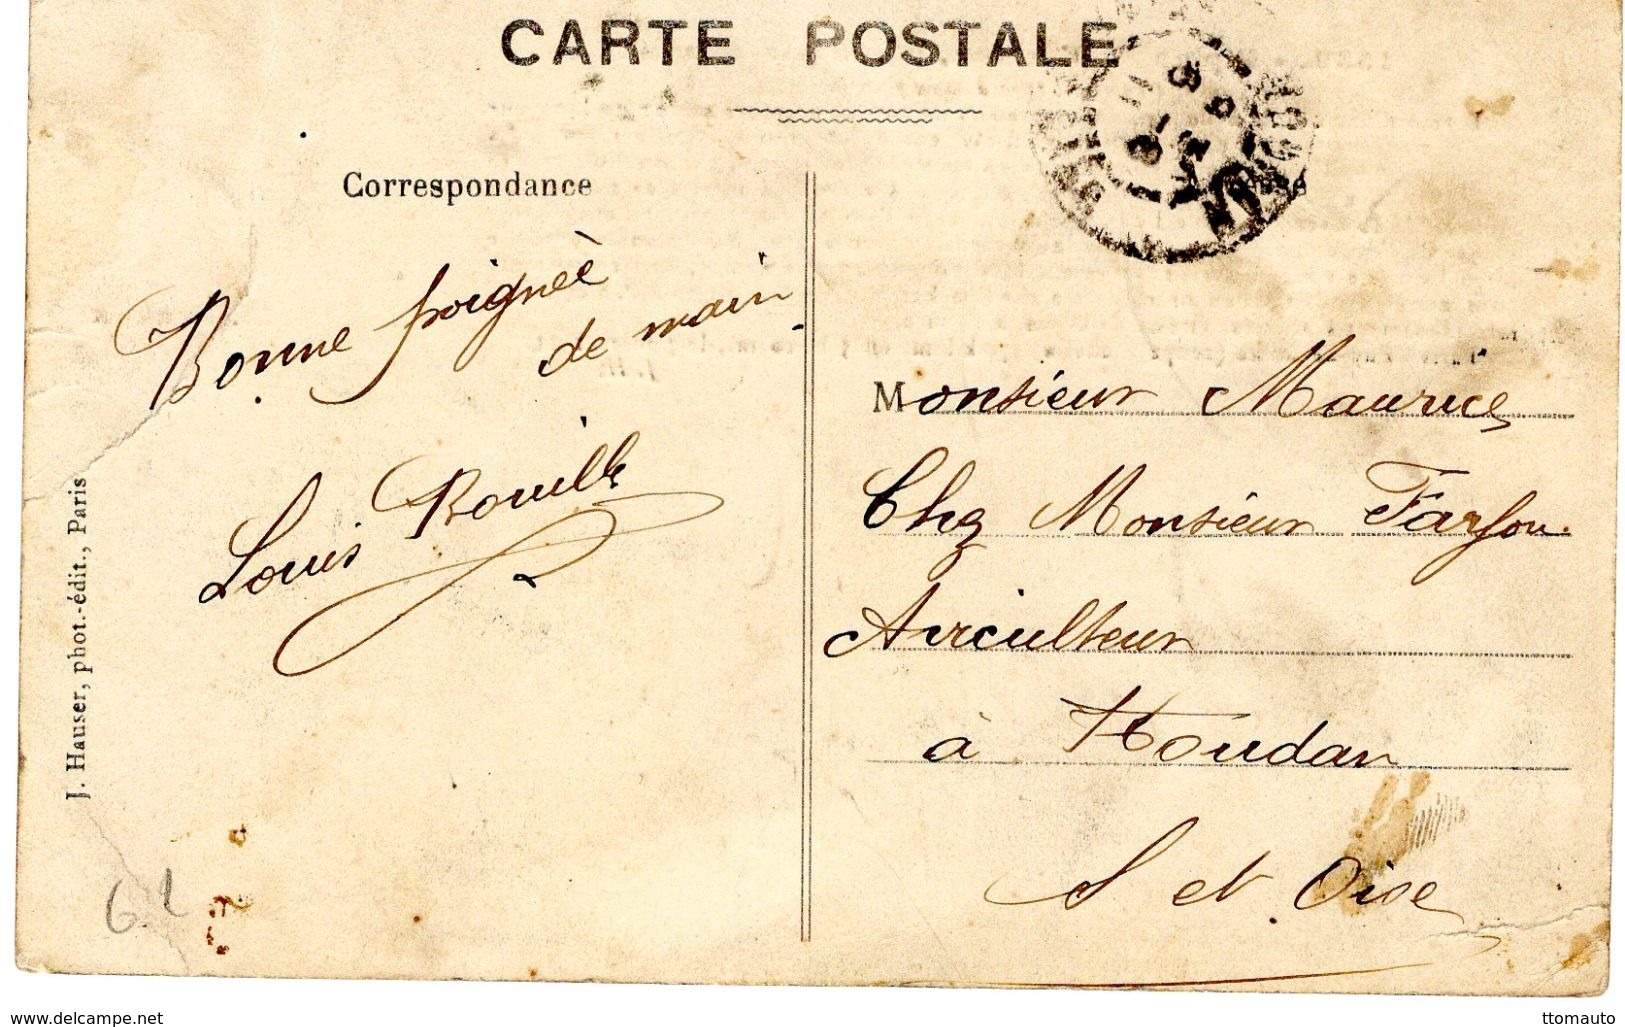 CARTE POSTALE
Correspondance
Bonne poignèe
de main
Louis Rouillé
J. Hauser, phot.-édit., Paris
Monsieur Maurice
Chez Monsieur Farfou
Aviculteur
à Houdan
S et Oise
www.delcampe.net
ttomauto